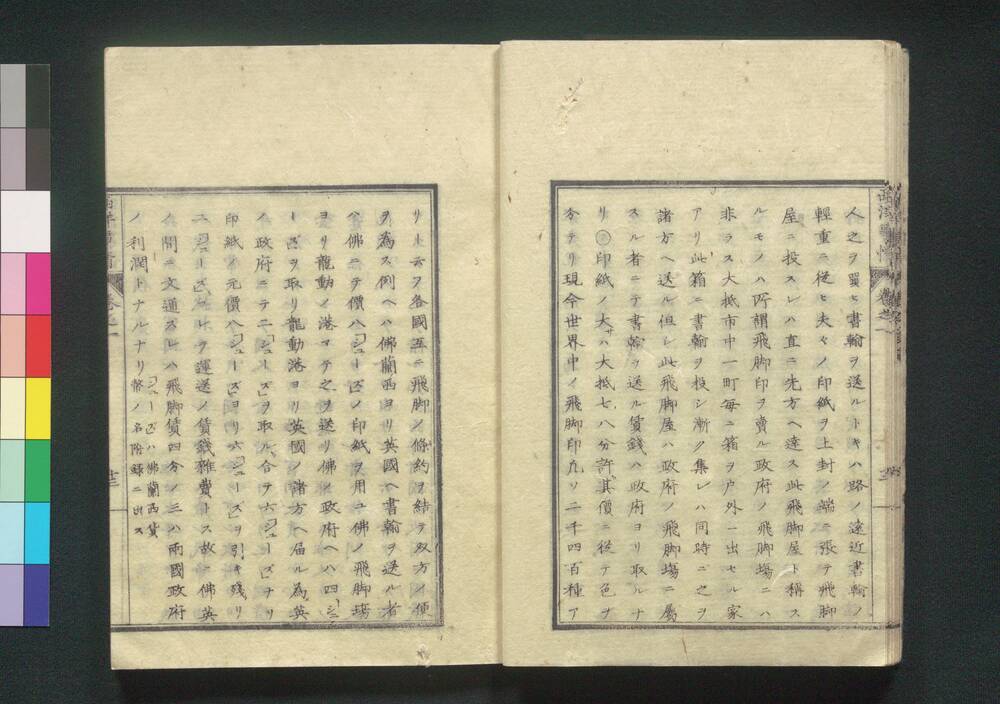 人之ヲ買ヒ書翰ヲ送ルトキハ路ノ遠近書翰ノ
輕重ニ從ヒ夫々ノ印紙ヲ上封ノ端ニ張テ飛脚
屋ニ投スレハ直ニ先方ヘ達ス此飛脚屋ト稱ス
ルモノハ所謂飛脚印ヲ賣ル政府ノ飛脚場ニハ
非ラス大抵市中一町毎ニ箱ヲ戸外ニ出セル家
アリ此箱ニ書翰ヲ投シ漸ク集レハ同時ニ之ヲ
諸方ヘ送ル但シ此飛脚屋ハ政府ノ飛脚場ニ屬
スル者ニテ書翰ヲ送ル賃錢ハ政府ヨリ取ルナ
リ印紙ノ大サハ大抵七八分許其價ニ從テ色ヲ
分テリ現今世界中ノ飛脚印凡ソ二千四百種ア
リト云フ各國互ニ飛脚ノ條約ヲ結テ双方ノ便
ヲ為ス例ヘハ佛蘭西ヨリ英國ヘ書翰ヲ送ル者
ハ佛ニテ價八「シュー」ズノ印紙ヲ用ユ佛ノ飛脚場
ヨリ龍動ノ港マテ之ヲ送リ佛ノ政府ヘハ四「シュ
ー」ズヲ取リ龍動港ヨリ英國ノ諸方ヘ届ル為英
ノ政府ニテ二「シュー」ズヲ取ル合テ六「シュー」ズナリ
印紙ノ元價八「シュー」ズヨリ六「シュー」ズヲ引キ殘リ
二「シュー」ズコレヲ運送ノ賃錢雜費トス故ニ佛英
ノ間ニ文通スレハ飛脚賃四分ノ三ハ兩國政府
ノ利潤トナルナリ「シュー」ズハ佛蘭西貨幣ノ名附録ニ出ス
卷之一
廿三